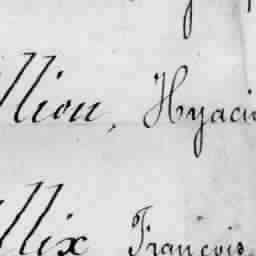 llion, Hyaci
llix François